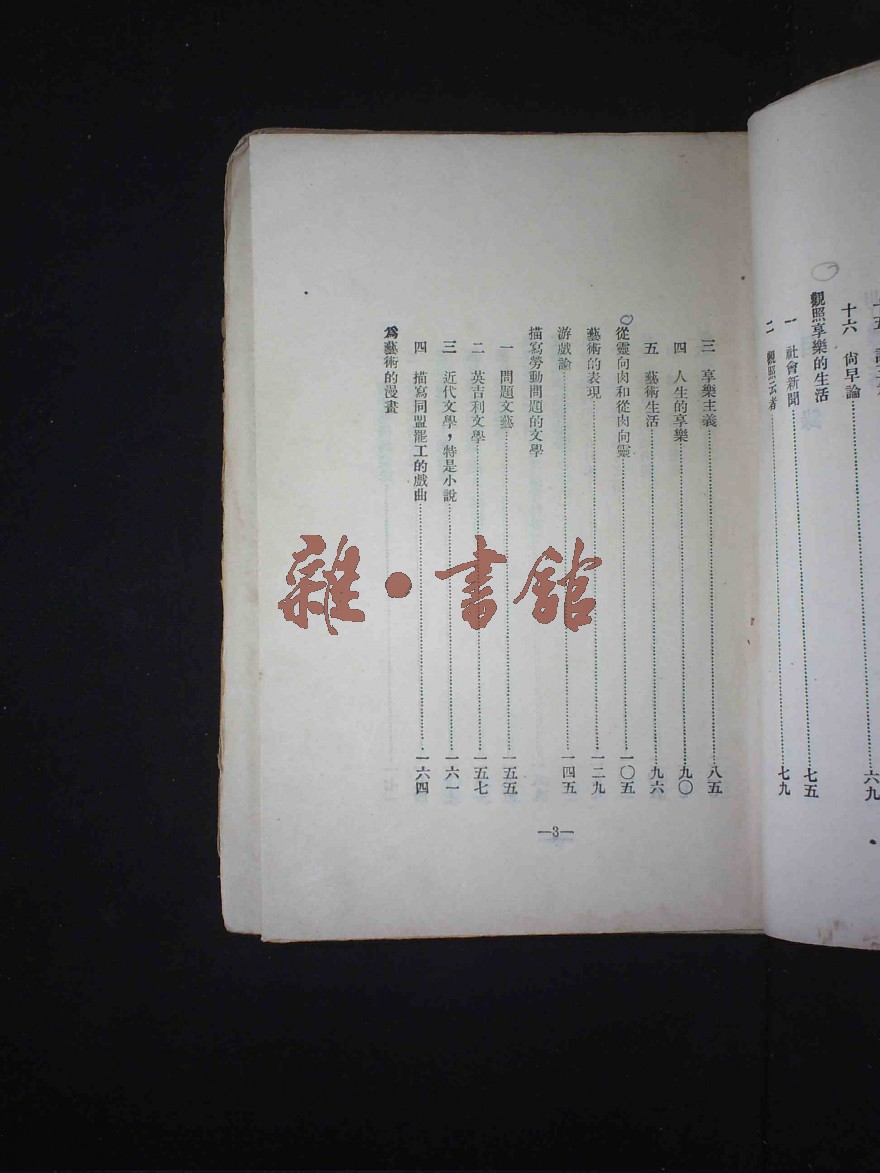 十六 尙早論
六九
觀照享樂的生活
七五
一 社會新聞
二 觀照云者
七九
三 享樂主義
八五
四 人生的享樂
九〇
五 藝術生活
九六
從靈向肉和從肉向靈
一〇五
藝術的表現
一二九
游戲論
一四五
描寫勞動問題的文學
一 問題文藝
一五五
二 英吉利文學
一五七
三 近代文學，特是小說
一六一
四 描寫同盟罷工的戲曲
一六四
爲藝術的漫畫
—3—
雜·書館